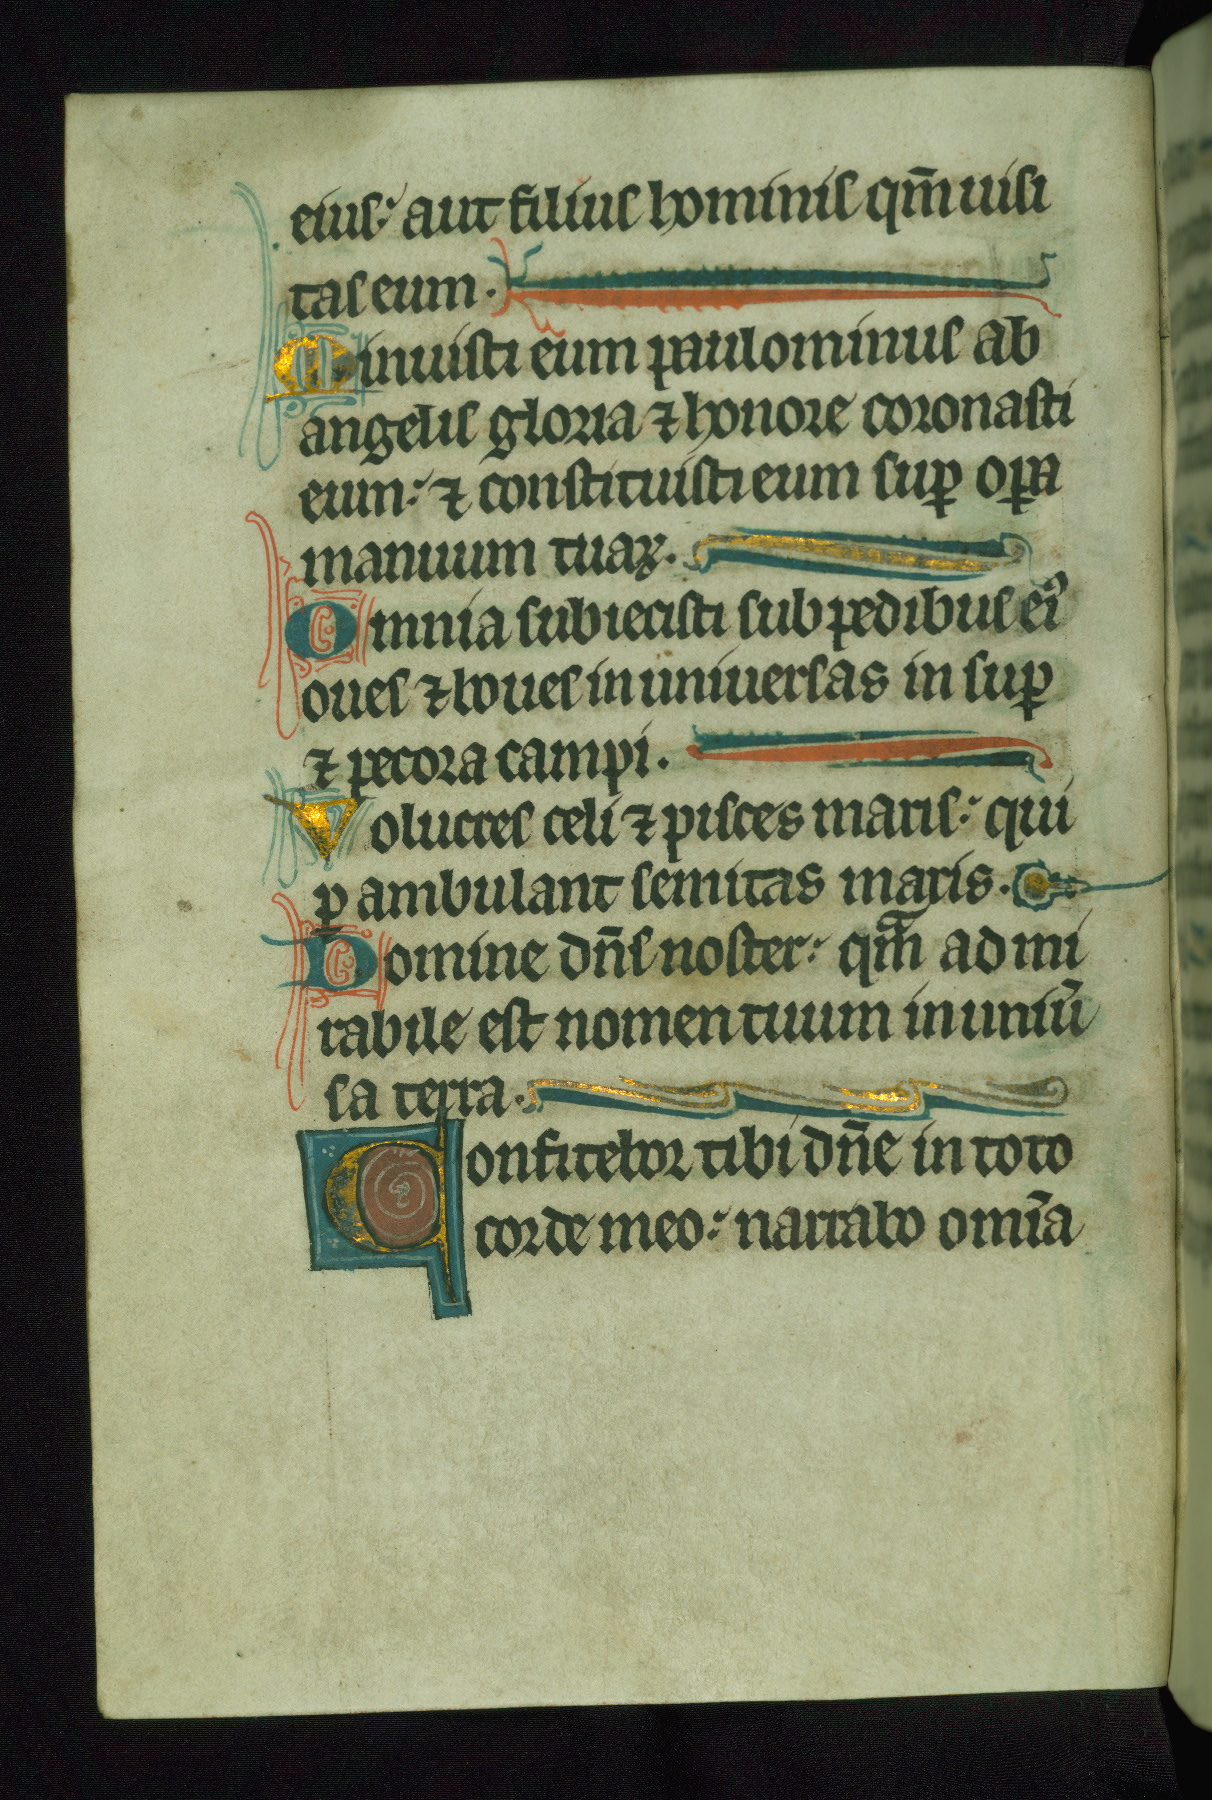 eius: aut filius hominis qm̄ uisi
tas eum.
Minuisti eum paulominus ab
angelis gloria ⁊ honore coronasti
eum: ⁊ constituisti eum sup̄ oꝑa
manuum tuaꝝ.
Omnia subiecisti sub pedibus eiꝰ
oues ⁊ boues in uniuersas in sup̄
⁊ pecora campi.
Volucres celi ⁊ pisces maris: qui
ꝑ ambulant semitas maris.
Domine dn̄s noster: qm̄ ad mi
rabile est nomen tuum in uniū
sa terra.
Confitebor tibi dn̄e in toto
corde meo: narrabo omīa